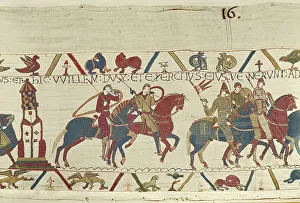 16.
HIC VVILLEM: DUX: ET EXERCITUS: EIUS: VENERUNT: AD